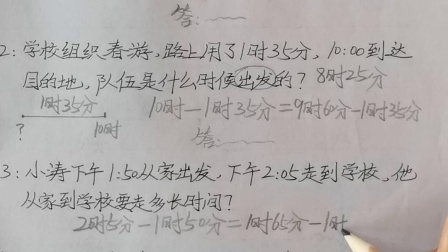 答:
2:学校组织春游,路上用了1时35分,10:00到达
目的地,队伍是什么时候出发的? 8时25分
1时35分
10时-1时35分=9时60分-1时35分
? 10时
答:
3:小涛下午1:50从家出发,下午2:05走到学校,他
从家到学校要走多长时间?
2时5分-1时50分=1时65分-1时